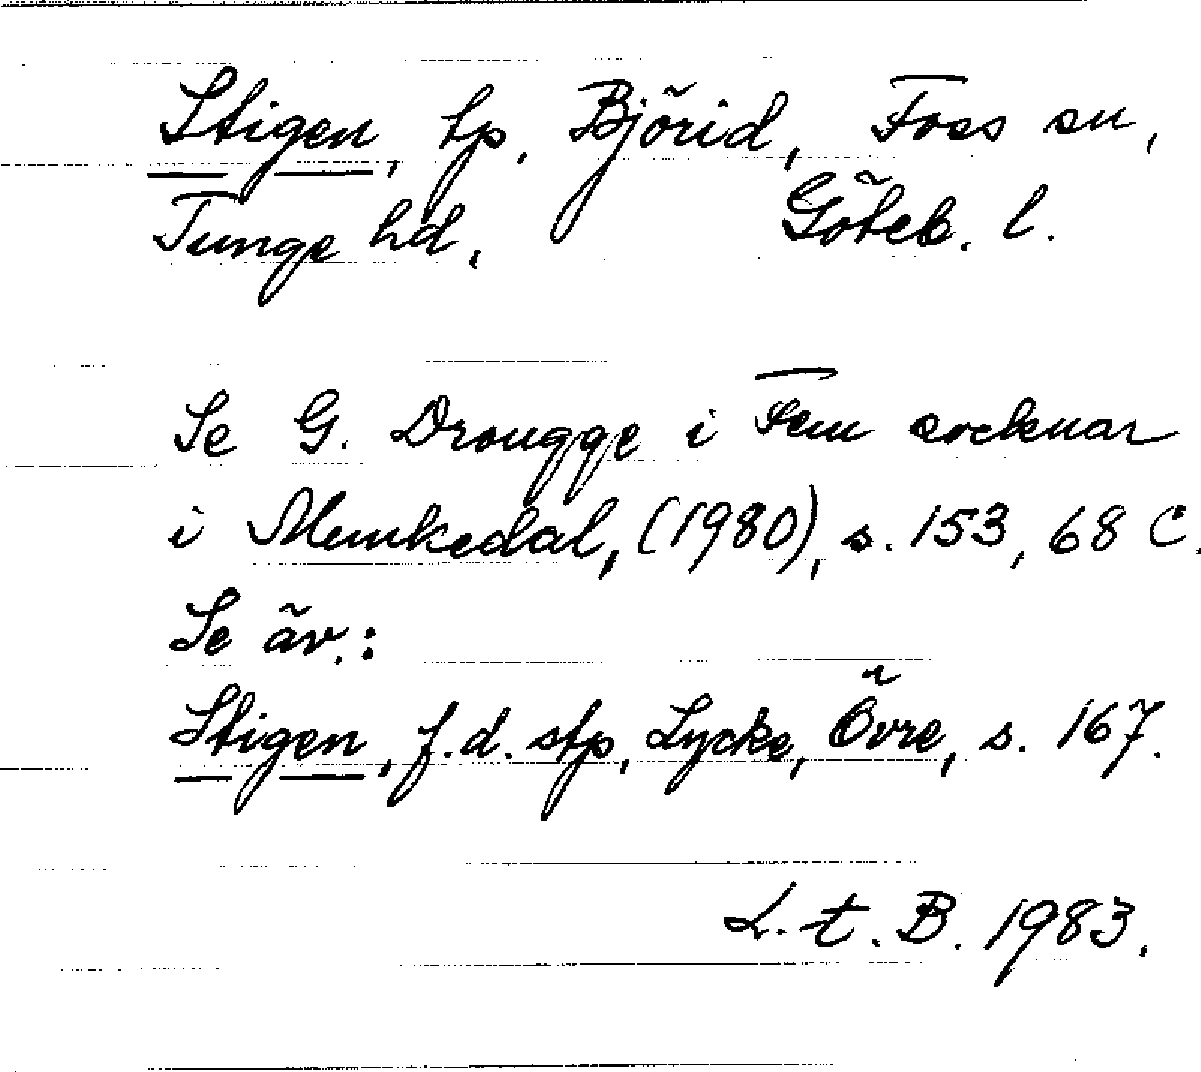 Stigen, tp. Björid, Foss sn,
Tunge hd, Göteb. l.
Se G. Drougge i Fem socknar
i Munkedal, (1980), s. 153, 68 C.
Se äv.:
Stigen, f.d. stp, Lycke, Övre, s. 167.
L. t. B. 1983.